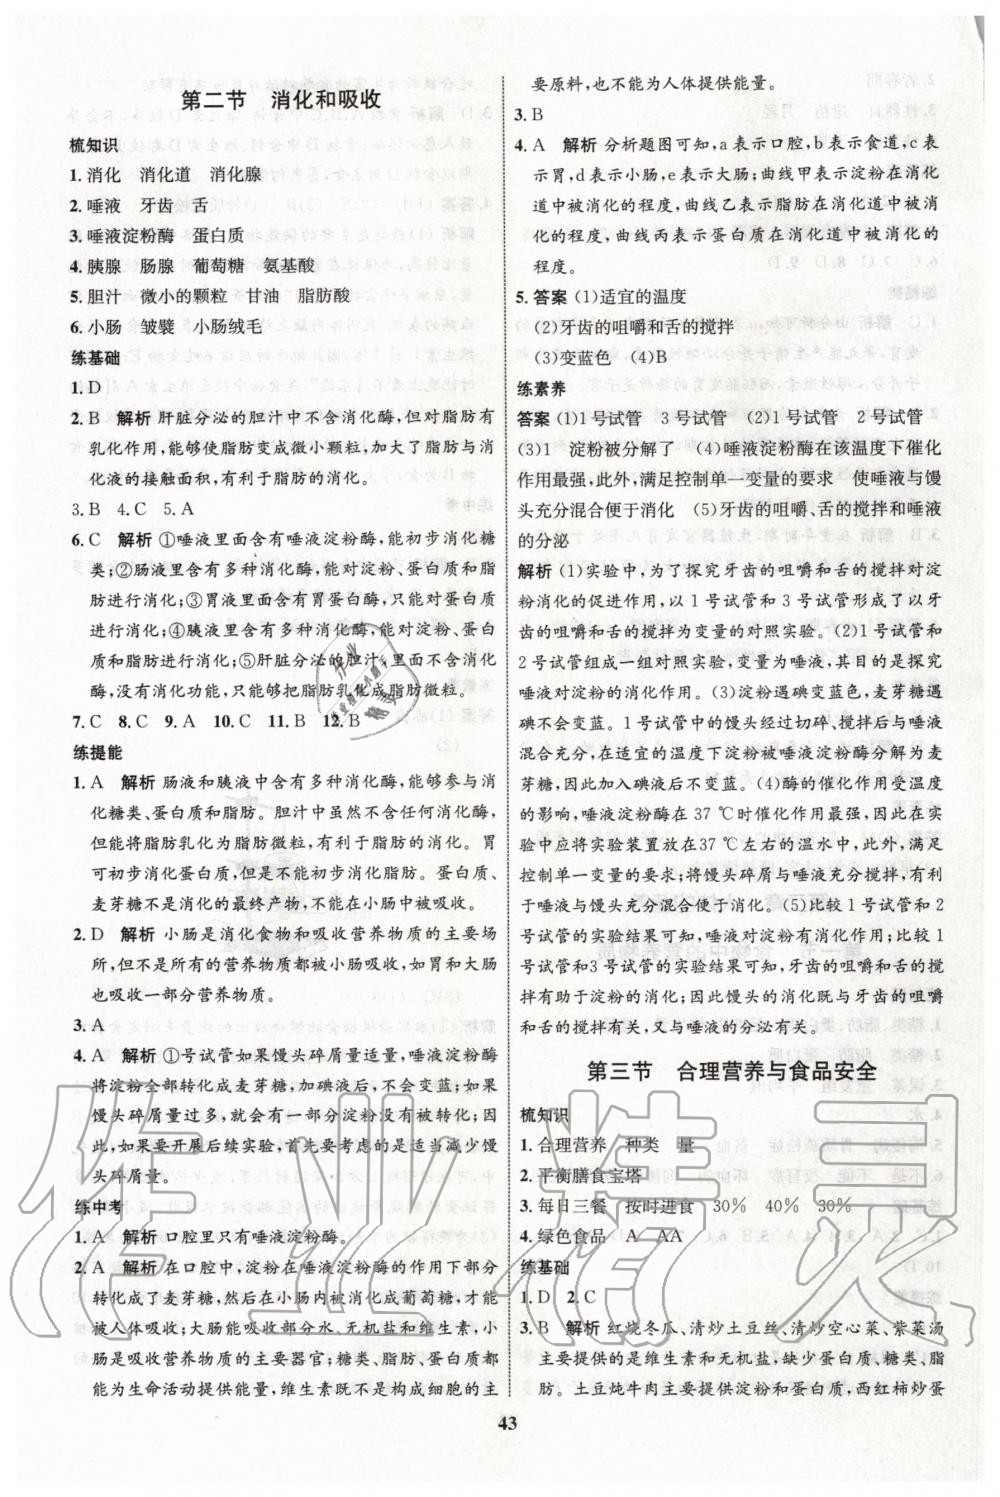 第二节　消化和吸收
梳知识
1. 消化　消化道　消化腺
2. 唾液　牙齿　舌
3. 唾液淀粉酶　蛋白质
4. 胰腺　肠腺　葡萄糖　氨基酸
5. 胆汁　微小的颗粒　甘油　脂肪酸
6. 小肠　皱襞　小肠绒毛
练基础
1. D
2. B　解析 肝脏分泌的胆汁中不含消化酶,但对脂肪有
乳化作用,能够使脂肪变成微小颗粒,加大了脂肪与消
化液的接触面积,有利于脂肪的消化。
3. B　4. C　5. A
6. C　解析 ①唾液里面含有唾液淀粉酶,能初步消化糖
类;②肠液里面含有多种消化酶,能对淀粉、蛋白质和脂
肪进行消化;③胃液里面含有胃蛋白酶,只能对蛋白质
进行消化;④胰液里面含有多种消化酶,能对淀粉、蛋白
质和脂肪进行消化;⑤肝脏分泌的胆汁里面不含消化
酶,没有消化功能,只能把脂肪乳化成脂肪微粒。
7. C　8. C　9. A　10. C　11. C　12. B
练提能
1. A　解析 肠液和胰液中含有多种消化酶,能够参与消
化糖类、蛋白质和脂肪。胆汁中虽然不含任何消化酶,
但能将脂肪乳化为脂肪微粒,有利于脂肪的消化。胃
可初步消化蛋白质,但是不能初步消化脂肪。蛋白质、
麦芽糖不是消化的最终产物,不能在小肠中被吸收。
2. D　解析 小肠是消化食物和吸收营养物质的主要场
所,但不是所有的营养物质都被小肠吸收。胃和大肠
也吸收一部分营养物质。
3. A
4. A　解析 ①号试管如果馒头碎屑量适量,唾液淀粉酶
将淀粉全部转化成了麦芽糖,加碘液不变蓝。但是,如果
馒头碎屑质量过多,就会有一部分淀粉没有被转化;因
此,如果要开展后续实验,首先要考虑的是适当减少馒
头碎屑量。
练中考
1. A　解析 口腔里只有唾液淀粉酶。
2. A　解析 在口腔中,淀粉在唾液淀粉酶的作用下部分
转化成了麦芽糖,然后在小肠内被消化成葡萄糖,才能
被人体吸收;大肠能吸收部分水、无机盐和维生素,小
肠是吸收营养物质的主要器官;糖类、脂肪、蛋白质都
能为生命活动提供能量,维生素既不是构成细胞的主
要原料,也不能为人体提供能量。
3. B
4. A　解析 分析题图可知,a表示口腔,b表示食道,c表
示胃,d表示小肠,e表示大肠;曲线甲表示淀粉在消化
道中被消化的程度,曲线乙表示脂肪在消化道中被消
化的程度,曲线丙表示蛋白质在消化道中被消化的
的程度。
5. 答案 (1)适宜的温度
(2)牙齿的咀嚼和舌的搅拌
(3)变蓝色　(4)B
练素养
答案 (1)1号试管　3号试管　(2)1号试管　2号试管
(3)1　淀粉被分解了　(4)唾液淀粉酶在该温度下催化
作用最强,此外,满足控制单一变量的要求　使唾液与馒
头充分混合便于消化　(5)牙齿的咀嚼、舌的搅拌和唾液
的分泌
解析 (1)实验中,为了探究牙齿的咀嚼和舌的搅拌对淀
粉消化的促进作用,以1号试管和3号试管形成了以牙
齿的咀嚼和舌的搅拌为变量的对照实验。(2)1号试管和
2号试管组成一组对照实验,变量为唾液,其目的是探究
唾液对淀粉的消化作用。(3)淀粉遇碘变蓝色,麦芽糖遇
碘不会变蓝。1号试管中的馒头经过切碎、搅拌后与唾液
混合充分,在适宜的温度下淀粉被唾液淀粉酶分解为麦
芽糖,因此加入碘液后不变蓝。(4)酶的催化作用受温度
的影响,唾液淀粉酶在37 ℃时催化作用最强。因此在实
验中应将实验装置放在37 ℃左右的温水中,此外,满足
控制单一变量的要求;将馒头碎屑与唾液充分搅拌,有利
于唾液与馒头充分混合便于消化。(5)比较1号试管和2
号试管的实验结果可知,唾液能够消化淀粉,比较1号试
管和3号试管的实验结果可知,牙齿的咀嚼和舌的搅拌
有助于淀粉的消化;因此馒头的消化既与牙齿的咀嚼
和舌的搅拌有关,又与唾液的分泌有关。
第三节　合理营养与食品安全
梳知识
1. 合理营养　种类　量
2. 平衡膳食宝塔
3. 每日三餐　按时进食　30%　40%　30%
4. 绿色食品　A　AA
练基础
1. D　2. C
3. B　解析 红烧冬瓜、清炒土豆丝、清炒空心菜、紫菜汤
主要提供的是维生素和无机盐,缺少蛋白质、糖类、脂
肪。土豆炖牛肉主要提供淀粉和蛋白质,西红柿炒蛋
43
作业精灵